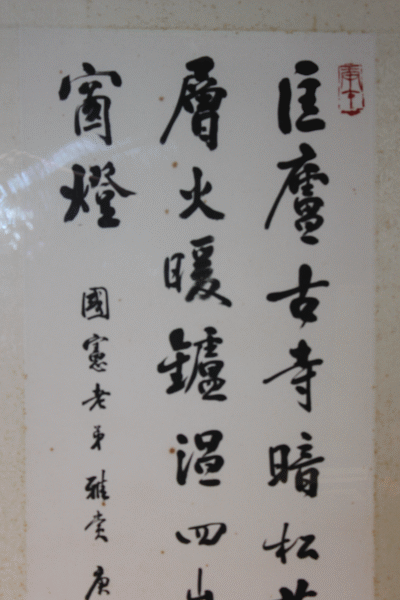 匡廬古寺暗松
層火暖鑪温四山
窗燈
國憲老弟雅賞 庚